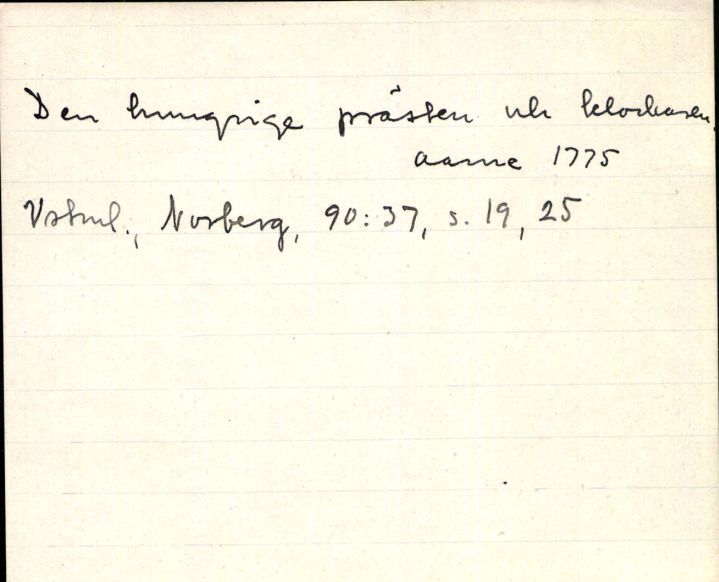 Den hungrige prästen och klockaren.
Aarne 1775
Vstml., Norberg, 90:37, s. 19, 25